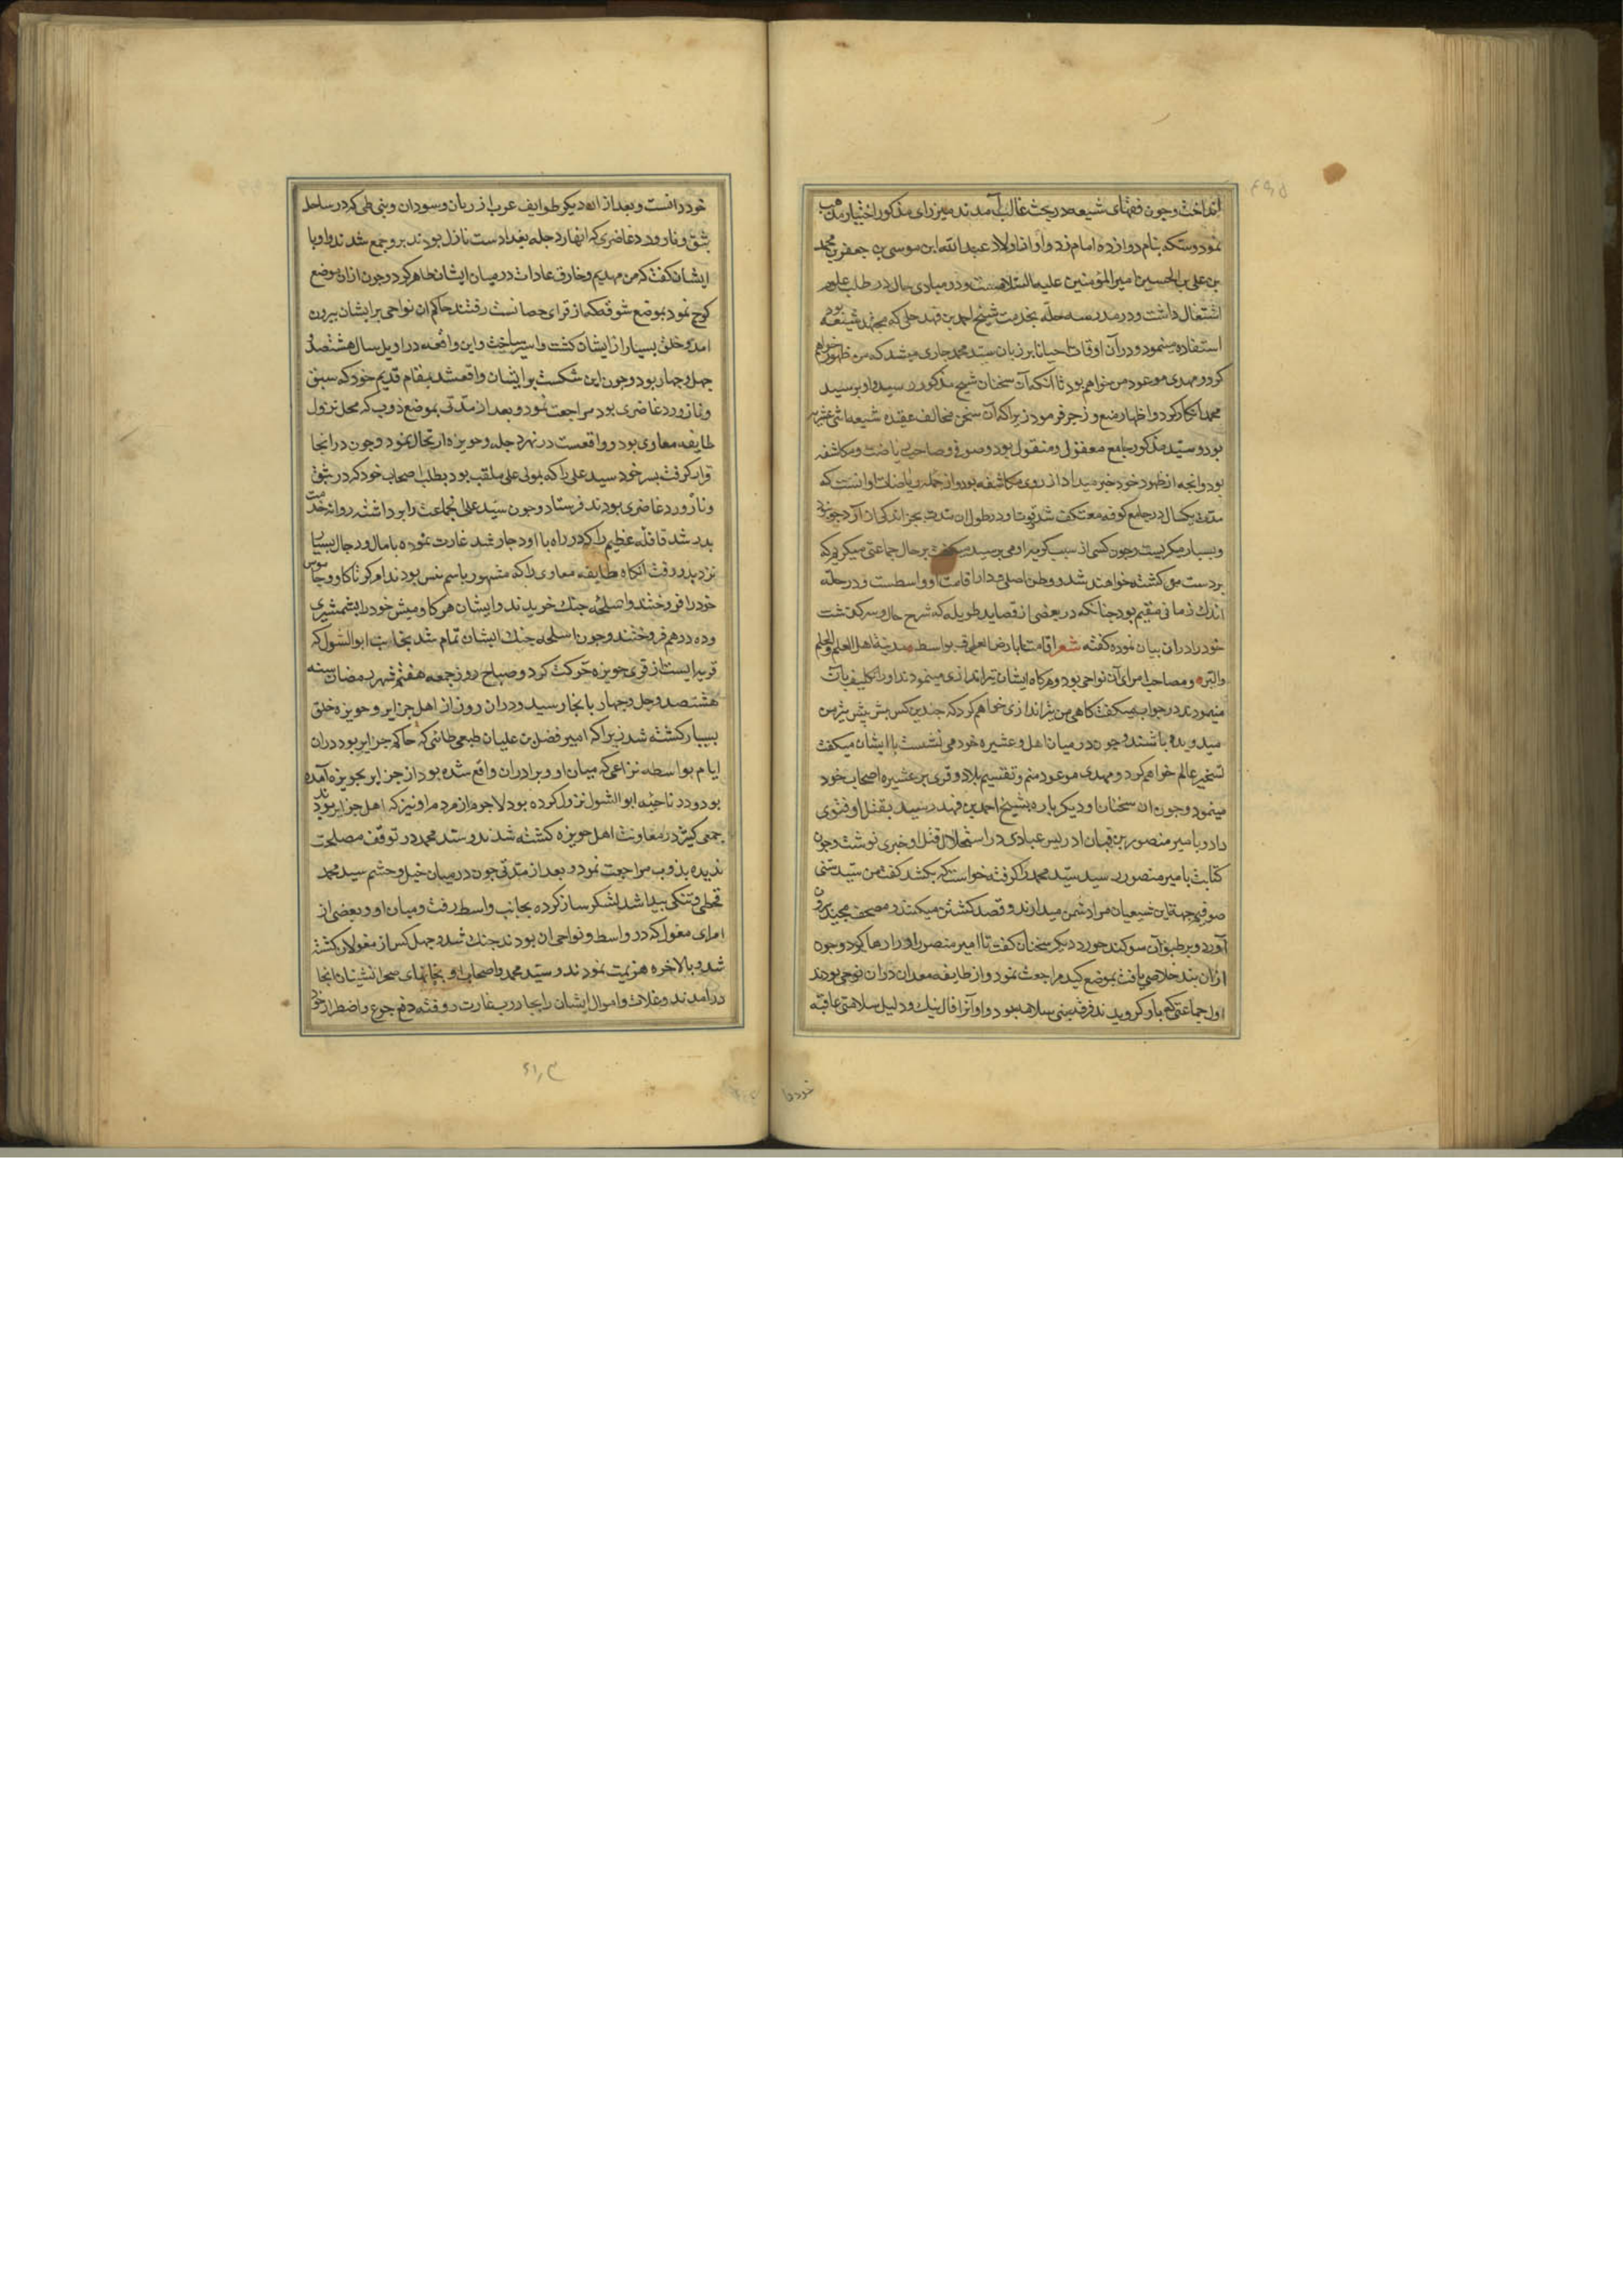 انداخت وچون فقهای شیعه در بحث غالب آمدند میرزای مذکور اختیار مذهب
نمود و سکه بنام دوازده امام زد و او از اولاد عبد الله ابن موسی بن جعفر بن محمد
بن علی بن الحسین بن امیر المؤمنین علیه السلامست و در مبادی حال در طلب علوم
اشتغال داشت و در مدرسه حله بخدمت شیخ احمد بن فهد حلی که مجتهد شیعه بود
استفاده مینمود و در آن اوقات احیانا بر زبان سید محمد جاری میشد که من ظهور خواهم
کرد و مهدی موعود من خواهم بود تا آنکه آن سخنان شیخ مذکور رسید و او بر سید
محمد انکار کرد و اظهار منع و زجر فرمود زیرا که آن سخن مخالف عقیده شیعه اثنی عشریه
بود و سید مذکور جامع معقول و منقول بود و صوفی و صاحب ریاضت و مکاشفه
بود و انچه از ظهور خود خبر میداد از روی مکاشفه بود و از جمله ریاضات او انست که
مدت یکسال در جامع کوفه معتکف شد و قوت او در طول ان مدت بجز اندکی از آرد جو نبود
و بسیار میکریست و چون کسی از سبب کریه از او می پرسید میکفت بر حال جماعتی میکریم که
بر دست من کشته خواهند شد و وطن اصلی و دار اقامت او واسطست و در حله
اندک زمانی مقیم بود چنانکه در بعضی از قصاید طویله که شرح حال و سرکذشت
خود را در ان بیان نموده کفته شعر اقامتنا بارض العراق بواسط مدینة اهل العلم والحلم
والبر و مصاحب امرای آن نواحی بود و هرکاه ایشان تیراندازی مینمودند و او را تکلیف بان
مینمودند در جواب میکفت کاهی من تیراندازی خواهم کرد که چندین کس پیش پیش تیر من
میدویده باشند و چون در میان اهل و عشیره خود می نشست با ایشان میکفت
تسخیر عالم خواهم کرد و مهدی موعود منم و تقسیم بلاد و قری بر عشیره و اصحاب خود
مینمود و چون ان سخنان او دیکر باره بشیخ احمد بن فهد رسید بقتل او فتوی
داد و بامیر منصور بن قبان ادریس عبادی در استحلال قتل او خبری نوشت و چون
کتابت بامیر منصور رسید سید محمد را کرفته خواست که بکشد کفت من سید سنی
صوفیم جهة این شیعیان مرا دشمن میدارند و قصد کشتن میکنند و مصحف مجید بیرون
آورد و بر طبق آن سوکند خورد و دیکر سخنان کفت تا امیر منصور او را رها کرد و چون
از ان بند خلاصی یافت بموضع کید مراجعت نمود و از طایفه معدان در ان نواحی بودند
اول جماعتی که باو کرویدند فرقه بنی سلامه بود و او آنرا فال نیک و دلیل سلامتی عاقبه
خود دانست و بعد از ان دیکر طوایف عرب از ربان و سودان و بنی طی که در ساحل
بثق و نازور و غاضری که انهار دجله بغدادست نازل بودند برو جمع شدند و او با
ایشان کفت که من مهدیم و خارق عادات در میان ایشان ظاهر کرد و چون از ان موضع
کوچ نمود بموضع شوقه که از قرای حصانست رفتند حاکم ان نواحی بر ایشان بیرون
امد و خلق بسیار از ایشان کشت و اسیر ساخت و این واقعه در اویل سال هشتصد
چهل و چهار بود و چون این شکست بر ایشان واقع شد بمقام قدیم خود که بثق
و نازور و غاضری بود مراجعت نمود و بعد از مدتی بموضع ذوب که محل نزول
طایفه معاوی بود و واقعست در نهر دجله و حویزه ارتحال نمود و چون در انجا
قرار کرفت پسر خود سید علی را که بمولی علی ملقب بود بطلب اصحاب خود که در بثق
و نازور و غاضری بودند فرستاد و چون سید علی انجماعت را برداشته روانه خدمت
پدر شد قافله عظیم را که در راه با او دچار شد غارت نموده با مال و رجال بسیار
نزد پدر رفت انکاه طایفه معاوی را که مشهور باسم نیس بودند امر کرد تا کاو و جاموس
خود را فروختند و اسلحه جنک خریدند و ایشان هر کاومیش خود را بشمشیری
و ده درهم فروختند و چون اسلحه جنک ایشان تمام شد بجانب ابو الشول که
قریه ایست از قری حویزه حرکت کرد و صباح روز جمعه هفتم شهر رمضان سنه
هشتصد و چهل و چهار بانجا رسید و در ان روز از اهل جزایر و حویزه خلق
بسیار کشته شد زیرا که امیر فضل بن علیان طبعی طائی که حاکم جزایر بود در ان
ایام بواسطه نزاعی که میان او و برادران واقع شده بود از جزایر بحویزه آمده
بود و در ناحیه ابو الشول نزول کرده بود لاجرم از مردم او نیز که اهل جزایر بودند
جمعی کثیر در معاونت اهل حویزه کشته شدند و سید محمد در توقف مصلحت
ندیده بذوب مراجعت نمود و بعد از مدتی چون در میان خیل و حشم سید محمد
قحطی و تنکی پیدا شد لشکر ساز کرده بجانب واسط رفت و میان او و بعضی از
امرای مغول که در واسط و نواحی ان بودند جنک شد و چهل کس از مغولان کشته
شد و بالاخره هزیمت نمودند و سید محمد و اصحاب او بخانهای صحرانشینان انجا
درامدند و غلات و اموال ایشان را بجاروب غارت روفته دفع جوع و اضطرار خود
خود دا